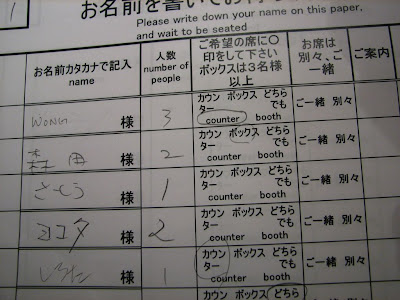 お名前を書いてお待
Please write down your name on this paper,
and wait to be seated
お名前カタカナで記入 name
人数 number of people
ご希望の席に〇印をして下さい ボックスは3名様以上
お席は別々、ご一緒
ご案内
WONG 様 3 カウンター ボックス どちらでも counter booth ご一緒 別々
森田 様 2 カウンター ボックス どちらでも counter booth ご一緒 別々
さとう 様 1 カウンター ボックス どちらでも counter booth ご一緒 別々
ヨコタ 様 2 カウンター ボックス どちらでも counter booth ご一緒 別々
様 1 カウンター ボックス どちらでも counter booth ご一緒 別々
カウン ボックス どちら